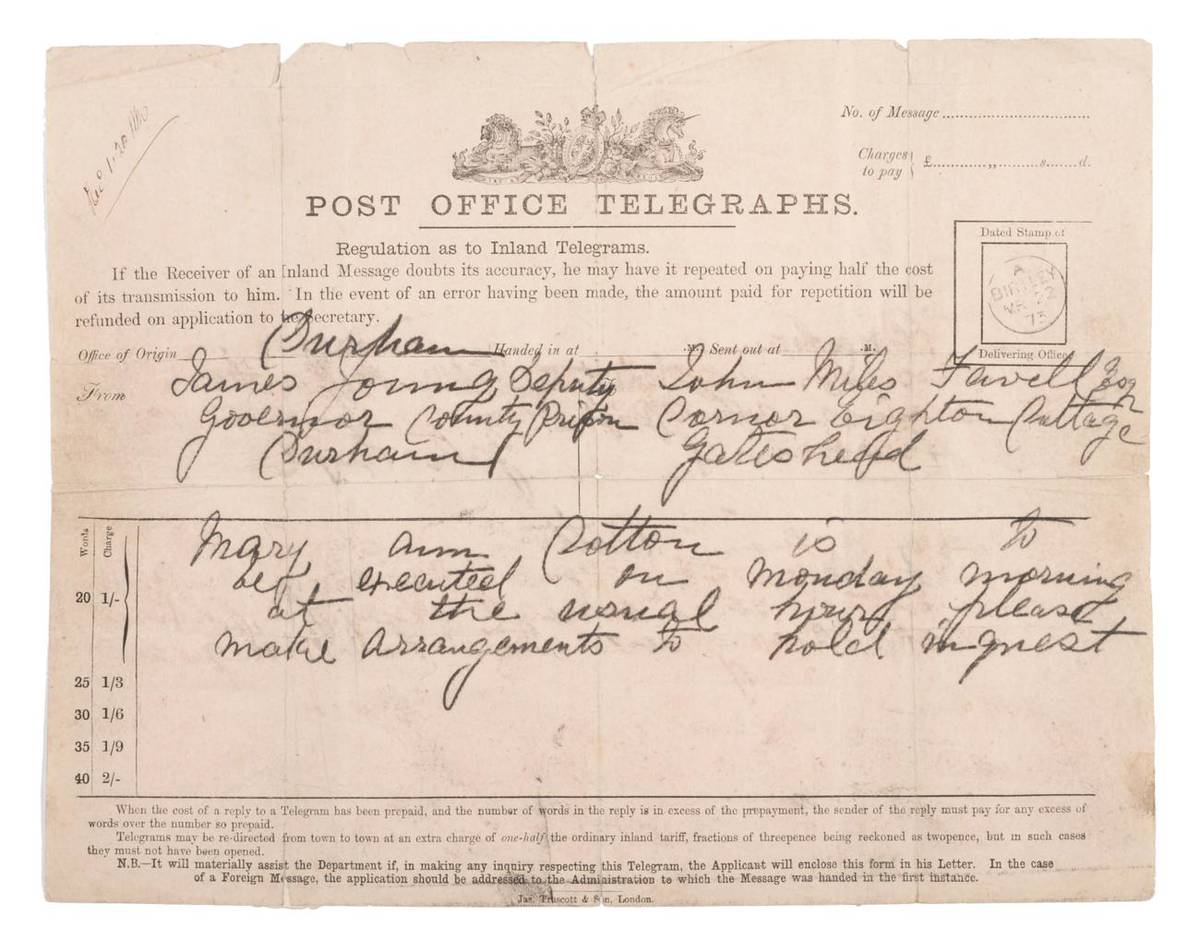 Rec 1.20
No. of Message
Charges to pay £ „ s d.
POST OFFICE TELEGRAPHS.
Dated Stamp of
BIRTLEY
73
Delivering Office
Regulation as to Inland Telegrams.
If the Receiver of an Inland Message doubts its accuracy, he may have it repeated on paying half the cost
of its transmission to him. In the event of an error having been made, the amount paid for repetition will be
refunded on application to the Secretary.
Office of Origin Durham Handed in at .M. Sent out at .M.
From James Young Deputy
Governor County Prison
Durham
John Miles Favell Esq
Coroner Eighton Cottage
Gateshead
Words Charge
Mary ann Cotton is to
be executed on monday morning
20 1/-
at the usual hour please
make arrangements to hold inquest
25 1/3
30 1/6
35 1/9
40 2/-
When the cost of a reply to a Telegram has been prepaid, and the number of words in the reply is in excess of the prepayment, the sender of the reply must pay for any excess of
words over the number so prepaid.
Telegrams may be re-directed from town to town at an extra charge of one-half the ordinary inland tariff, fractions of threepence being reckoned as twopence, but in such cases
they must not have been opened.
N.B.—It will materially assist the Department if, in making any inquiry respecting this Telegram, the Applicant will enclose this form in his Letter. In the case
of a Foreign Message, the application should be addressed to the Administration to which the Message was handed in the first instance.
Jas. Truscott & Son, London.